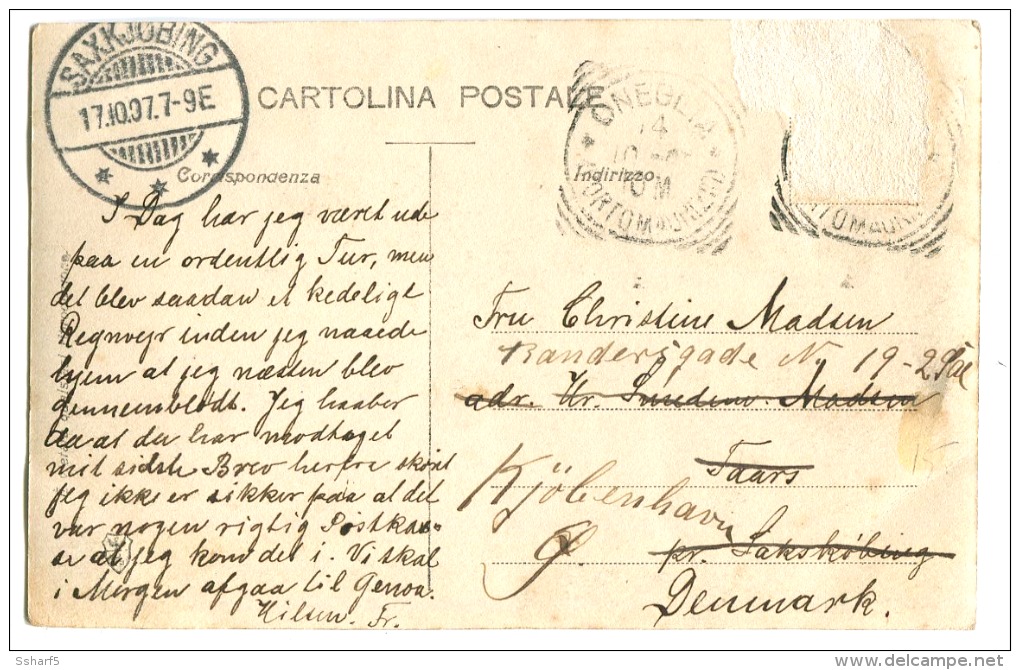 SAXKJØBING
17.10.07.7-9E
CARTOLINA POSTALE
ONEGLIA
14
10 M
(PORTOMAURIZIO)
Corrispondenza
Indirizzo
I Dag har jeg været ude
paa en ordentlig Tur, men
det blev saadan et kedeligt
Regnvejr inden jeg naaede
hjem at jeg næsten blev
gennemblødt. Jeg haaber
da at du har modtaget
mit sidste Brev herfra skønt
jeg ikke er sikker paa at det
var nogen rigtig Postkas=
se at jeg kom det i. Vi skal
i Morgen afgaa til Genoa.
Hilsen. Fr.
Fru Christine Madsen
Randersgade No 19-2 Sal
adr. Hr. Madsen
Taars
Kjöbenhavn
Ø.
pr. Sakskøbing
Denmark.
15
Ssharf5
delcampe.net